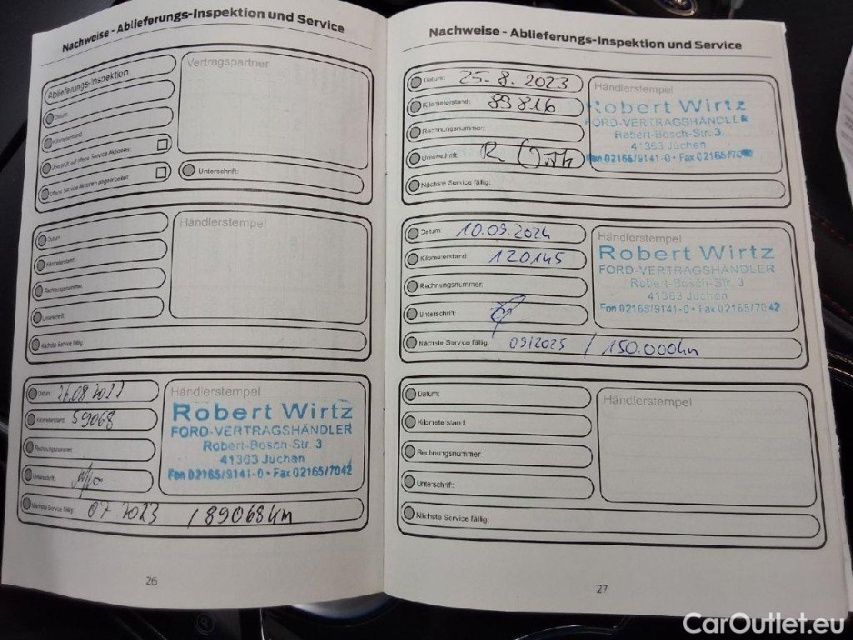 Nachweise - Ablieferungs-Inspektion und Service
Ablieferungs-Inspektion
Datum
Kilometerstand
Unterschrift:
Vertragspartner
Datum:
Kilometerstand:
Rechnungsnummer:
Unterschrift:
Nächste Service fällig:
Händlerstempel
Datum: 26.08.2022
Kilometerstand: 59068
Rechnungsnummer:
Unterschrift:
Nächste Service fällig: 07 2023 / 89068 km
Händlerstempel
Robert Wirtz
FORD-VERTRAGSHÄNDLER
Robert-Bosch-Str. 3
41363 Jüchen
Fon 02165/9141-0 • Fax 02165/7042
26
Nachweise - Ablieferungs-Inspektion und Service
Datum: 25.8.2023
Kilometerstand: 89816
Rechnungsnummer:
Unterschrift:
Nächste Service fällig:
Händlerstempel
Robert Wirtz
FORD-VERTRAGSHÄNDLER
Robert-Bosch-Str. 3
41363 Jüchen
Fon 02165/9141-0 • Fax 02165/7042
Datum: 10.09.2024
Kilometerstand: 120145
Rechnungsnummer:
Unterschrift:
Nächste Service fällig: 09/2025 / 150.000km
Händlerstempel
Robert Wirtz
FORD-VERTRAGSHÄNDLER
Robert-Bosch-Str. 3
41363 Jüchen
Fon 02165/9141-0 • Fax 02165/7042
Datum:
Kilometerstand:
Rechnungsnummer:
Unterschrift:
Nächste Service fällig:
Händlerstempel
27
CarOutlet.eu